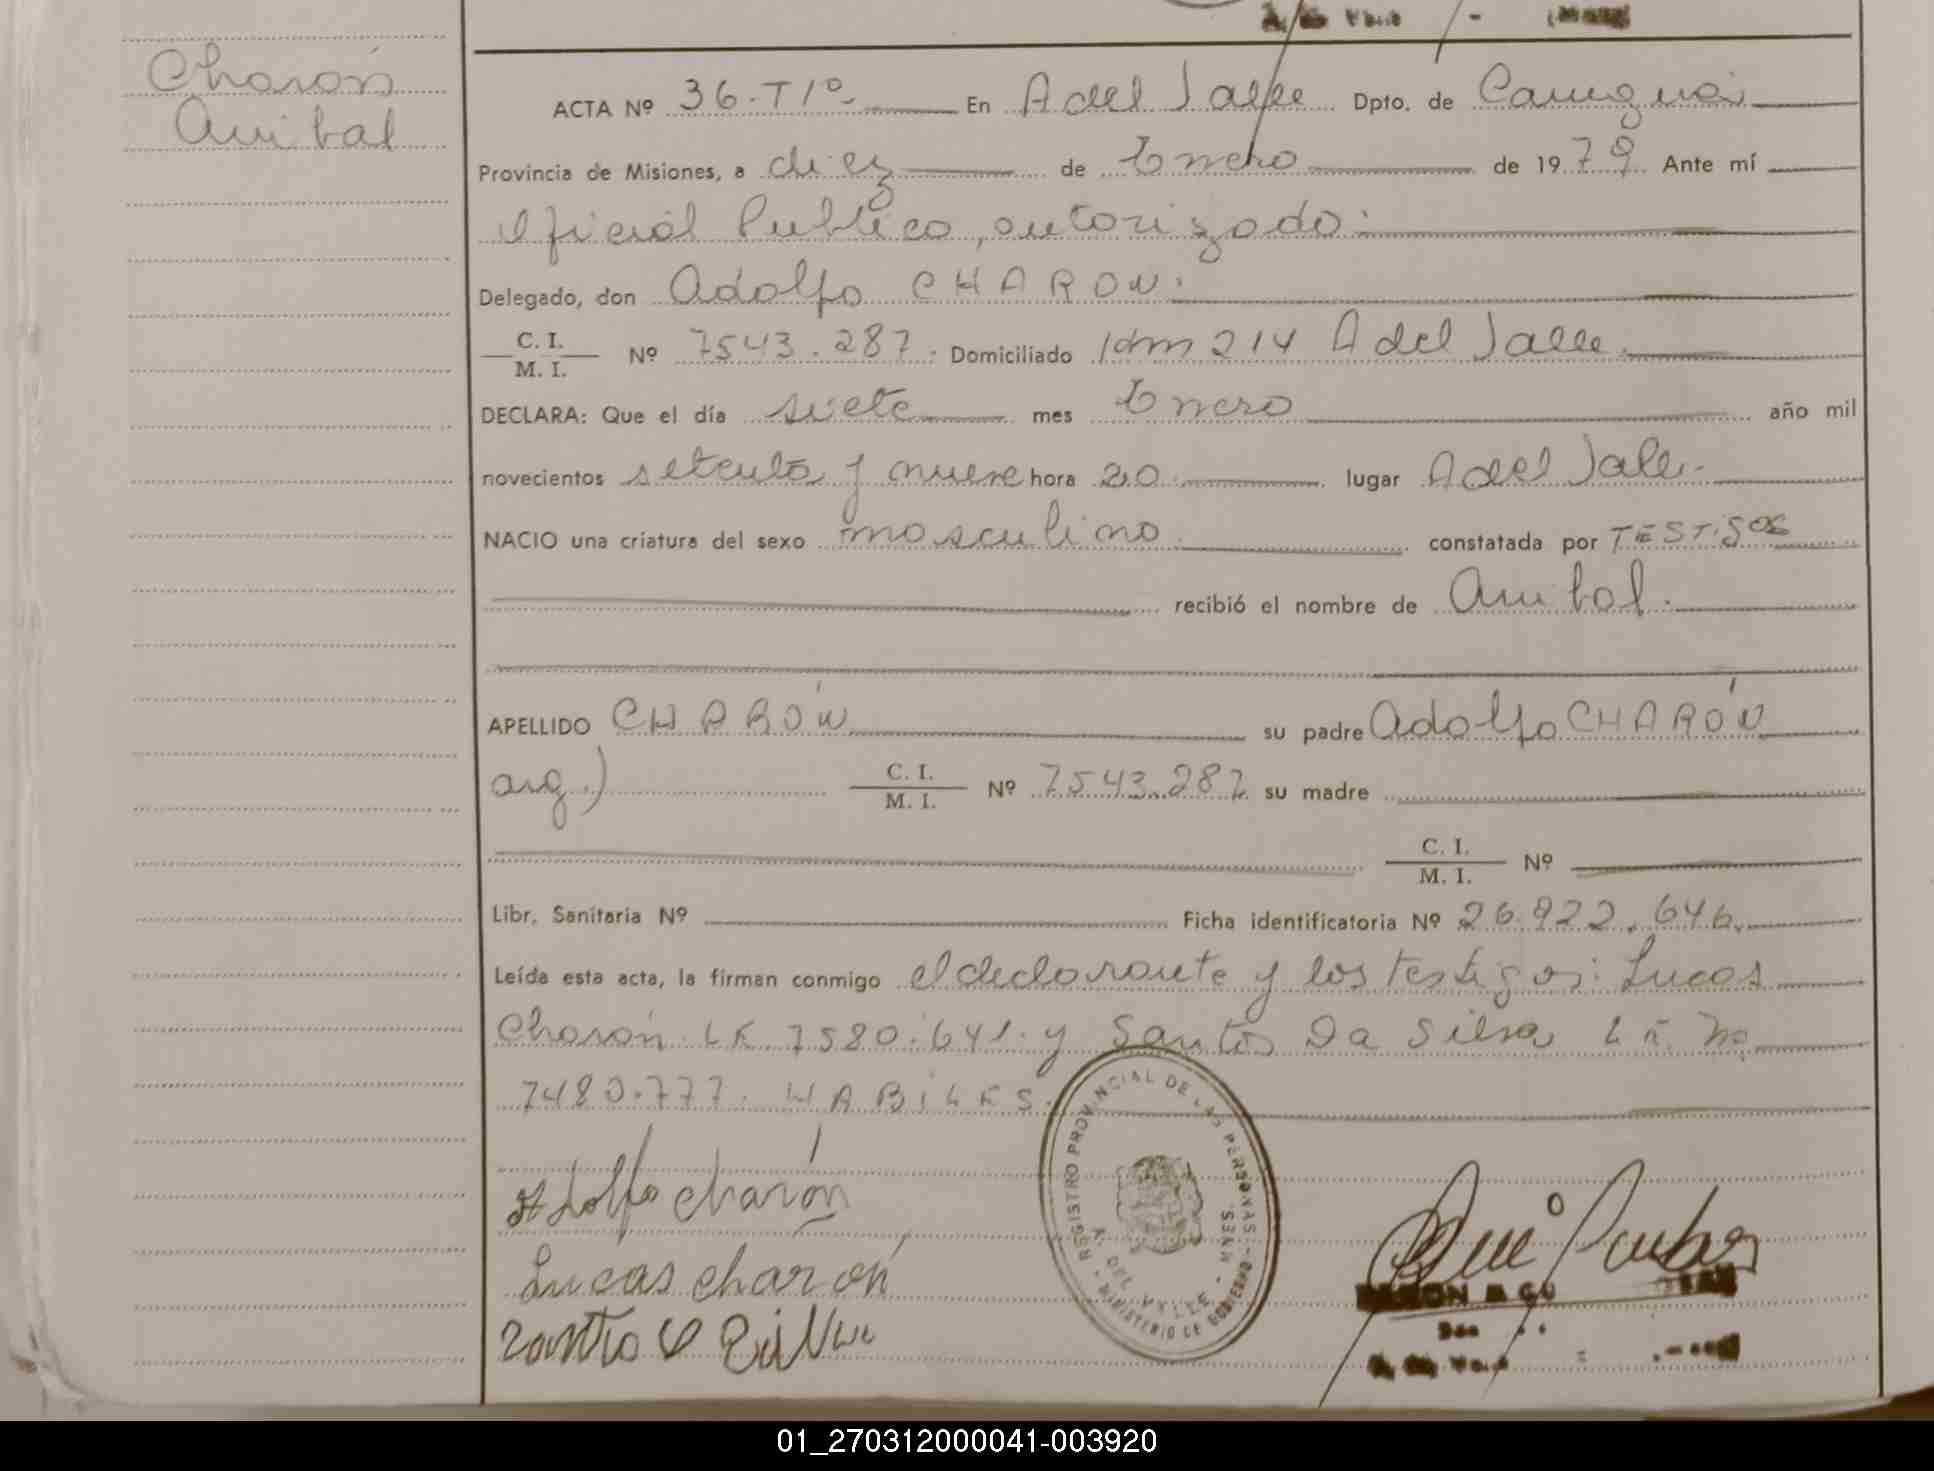 Charón
Anibal
ACTA Nº 36-T1º En A del Valle Dpto. de Cainguás
Provincia de Misiones, a diez de Enero de 1979 Ante mí
Oficial Publico, autorizado:
Delegado, don Adolfo CHARON.
C. I.
M. I.
Nº 7543.287. Domiciliado Km 214 A del Valle.
DECLARA: Que el día siete mes Enero año mil
novecientos setenta y nueve hora 20 lugar A del Valle.
NACIO una criatura del sexo masculino constatada por TESTIGOS
recibió el nombre de Anibal.
APELLIDO CHARÓN su padre Adolfo CHARÓN
arg.) C. I.
M. I.
Nº 7543.287 su madre
C. I.
M. I.
Nº
Libr. Sanitaria Nº Ficha identificatoria Nº 26.922.646.
Leída esta acta, la firman conmigo el declarante y los testigos: Lucas
Charón LE 7580.641. y Santos Da Silva L E. Nº
7480.777. HABILES.
Adolfo Charón
Lucas Charón
REGISTRO PROVINCIAL DE LAS PERSONAS
A. DEL VALLE - MNES.
MINISTERIO DE GOBIERNO
01_270312000041-003920